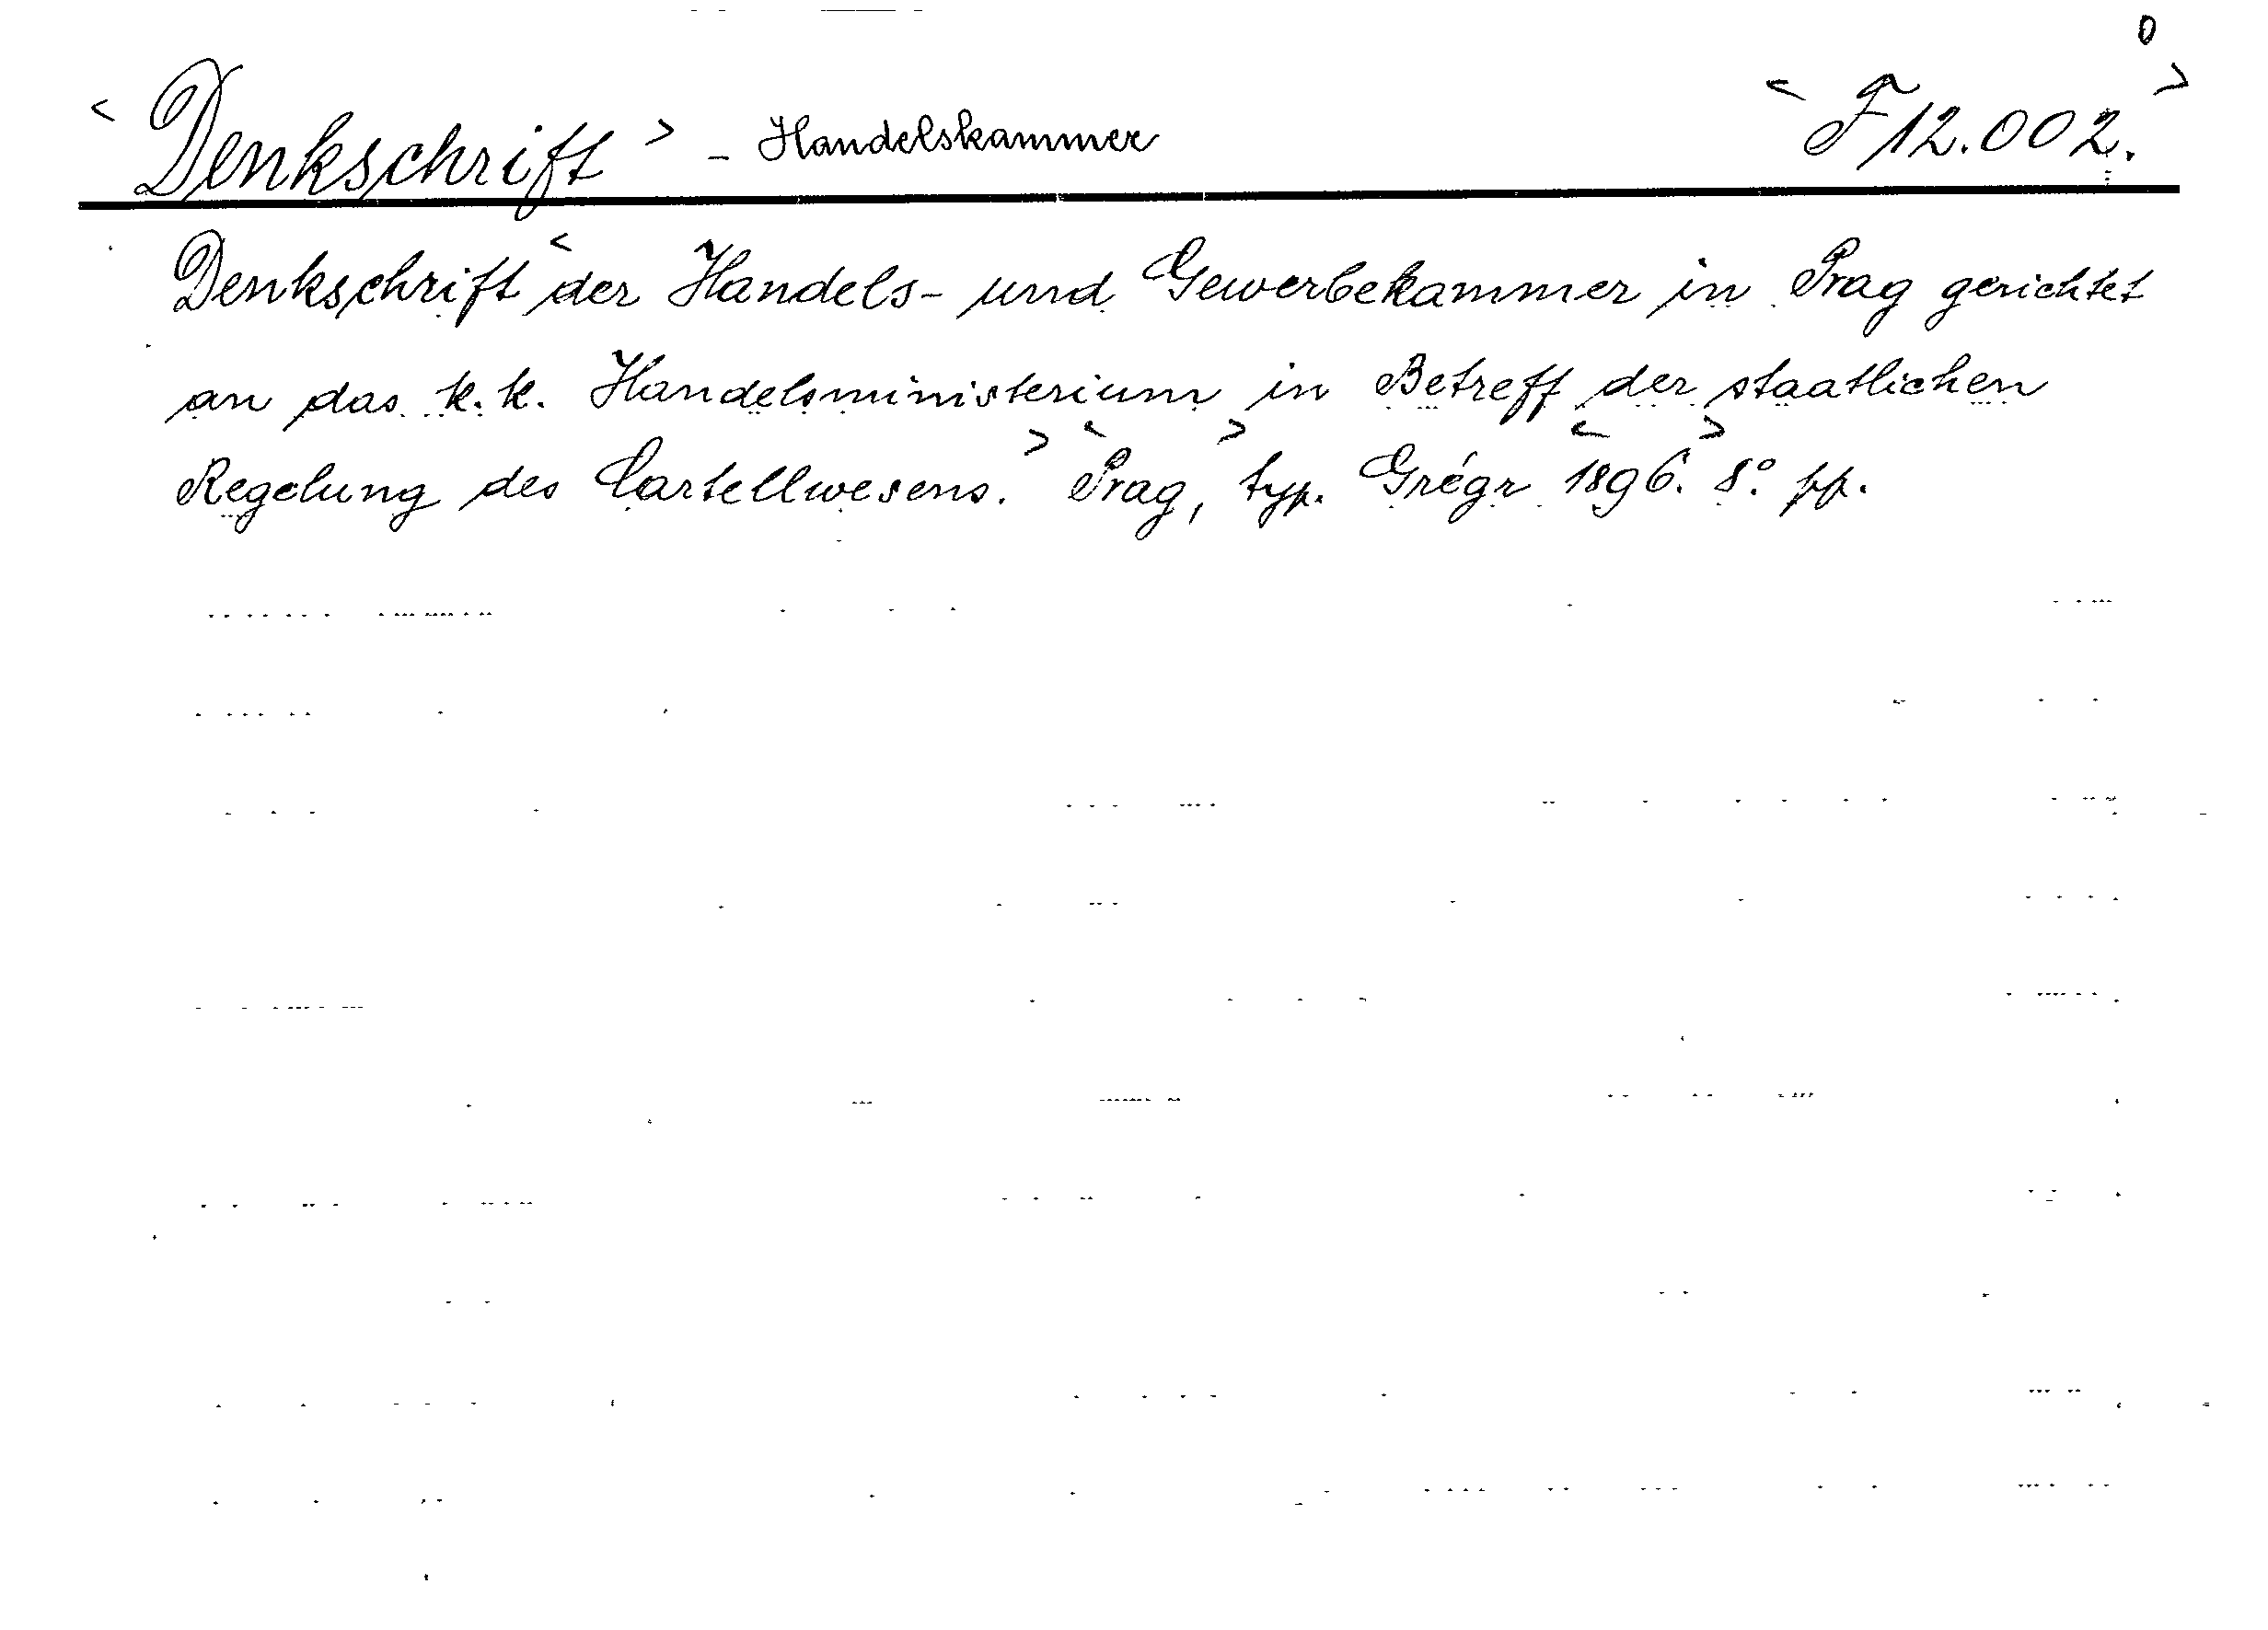 0
< Denkschrift > - Handelskammer < F 12.002. >
Denkschrift < der Handels- und Gewerbekammer in Prag gerichtet
an das k. k. Handelsministerium in Betreff der staatlichen
Regelung des Cartellwesens. > < Prag, > typ. Grégr < 1896. > 8° pp.